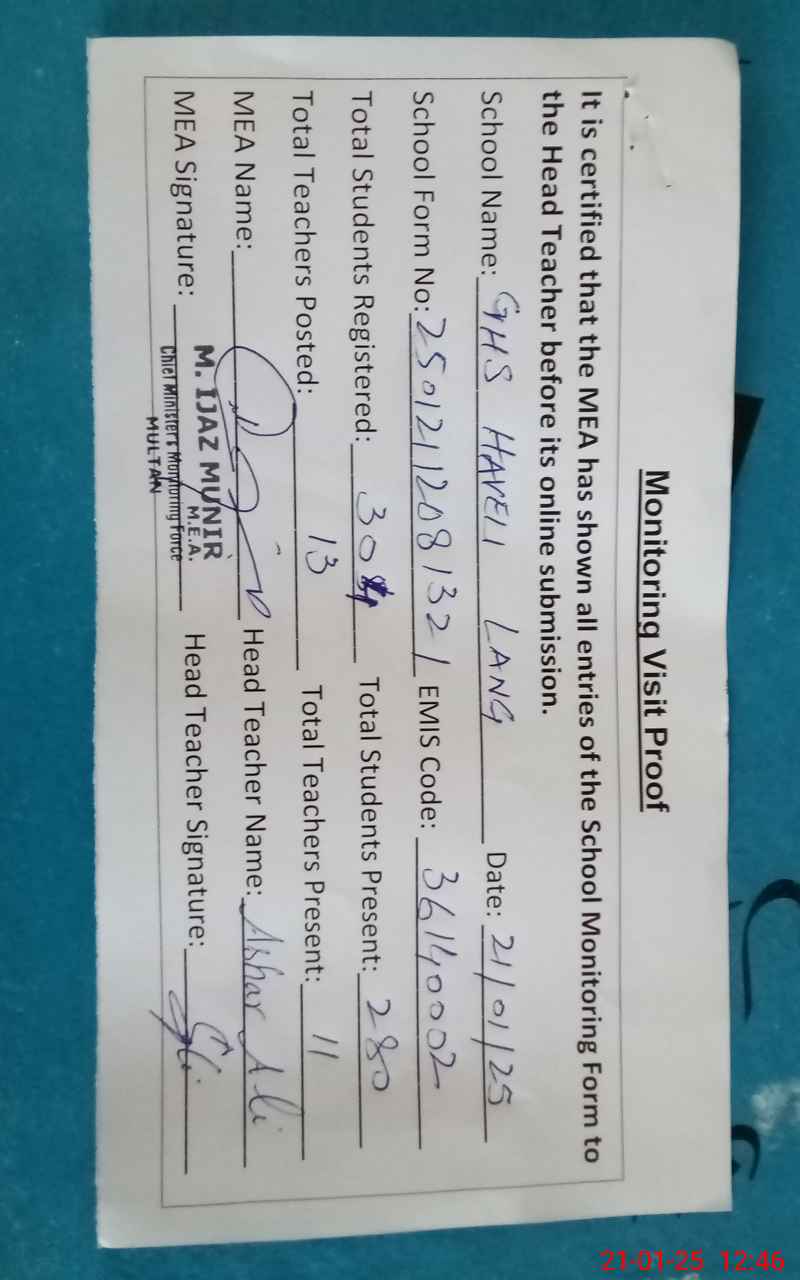 Monitoring Visit Proof
It is certified that the MEA has shown all entries of the School Monitoring Form to
the Head Teacher before its online submission.
School Name: GHS HAVELI LANG Date: 21/01/25
School Form No: 25012112081321 EMIS Code: 36140002
Total Students Registered: 304 Total Students Present: 280
Total Teachers Posted: 13 Total Teachers Present: 11
MEA Name: Head Teacher Name: Ali
M. IJAZ MUNIR
M.E.A.
MEA Signature: Head Teacher Signature:
Chief Minister's Monitoring Force
MULTAN
21-01-25 12:46